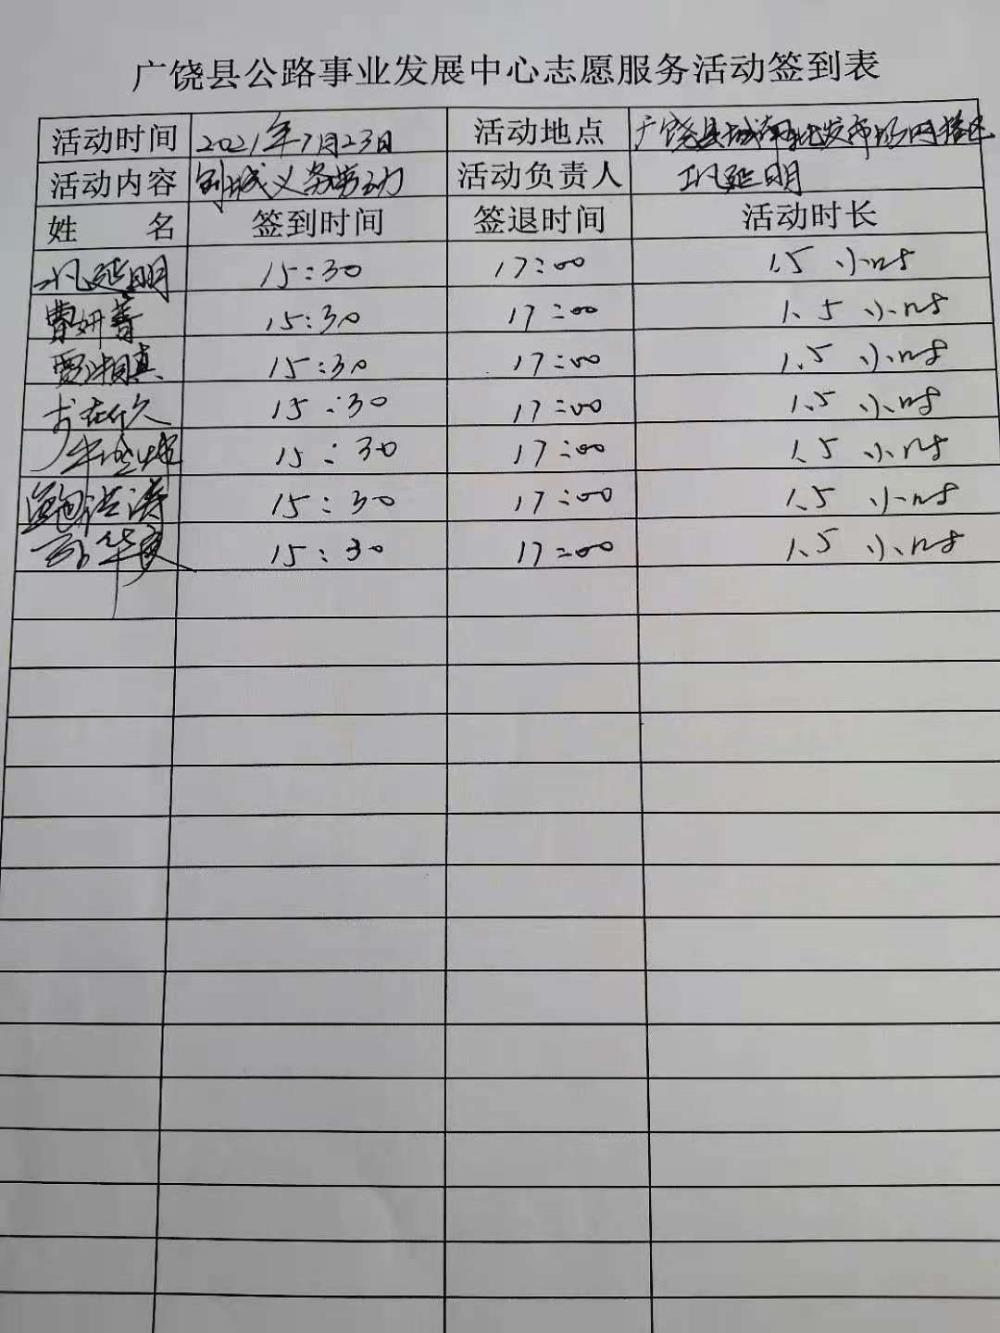 广饶县公路事业发展中心志愿服务活动签到表
活动时间 2021年7月23日 活动地点 广饶县城南批发市场网格区
活动内容 创城义务劳动 活动负责人 延明
姓 名 签到时间 签退时间 活动时长
延明 15:30 17:00 1.5 小时
曹妍菁 15:30 17:00 1.5 小时
贾湘真 15:30 17:00 1.5 小时
15:30 17:00 1.5 小时
15:30 17:00 1.5 小时
鲍洪涛 15:30 17:00 1.5 小时
15:30 17:00 1.5 小时